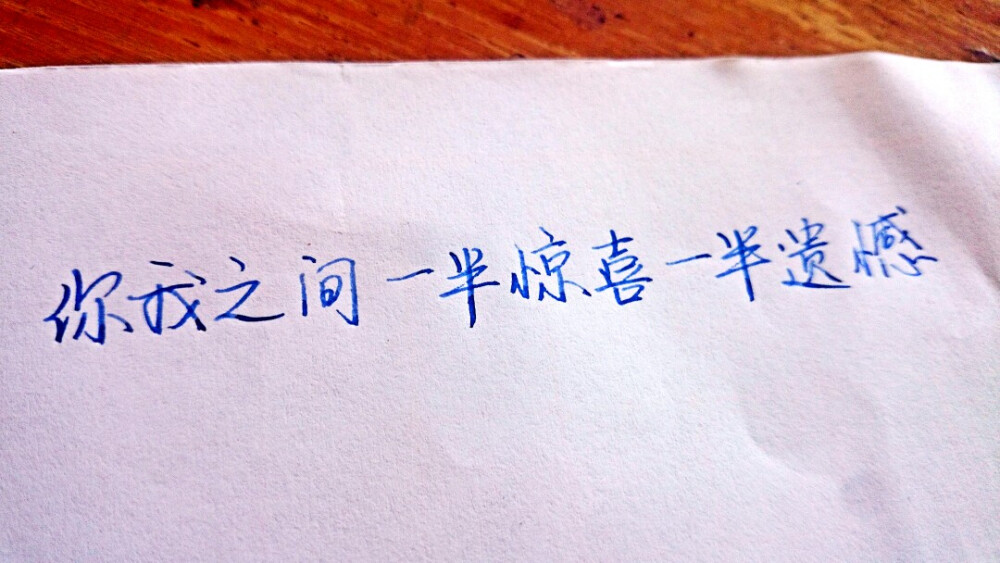 你我之间一半惊喜一半遗憾